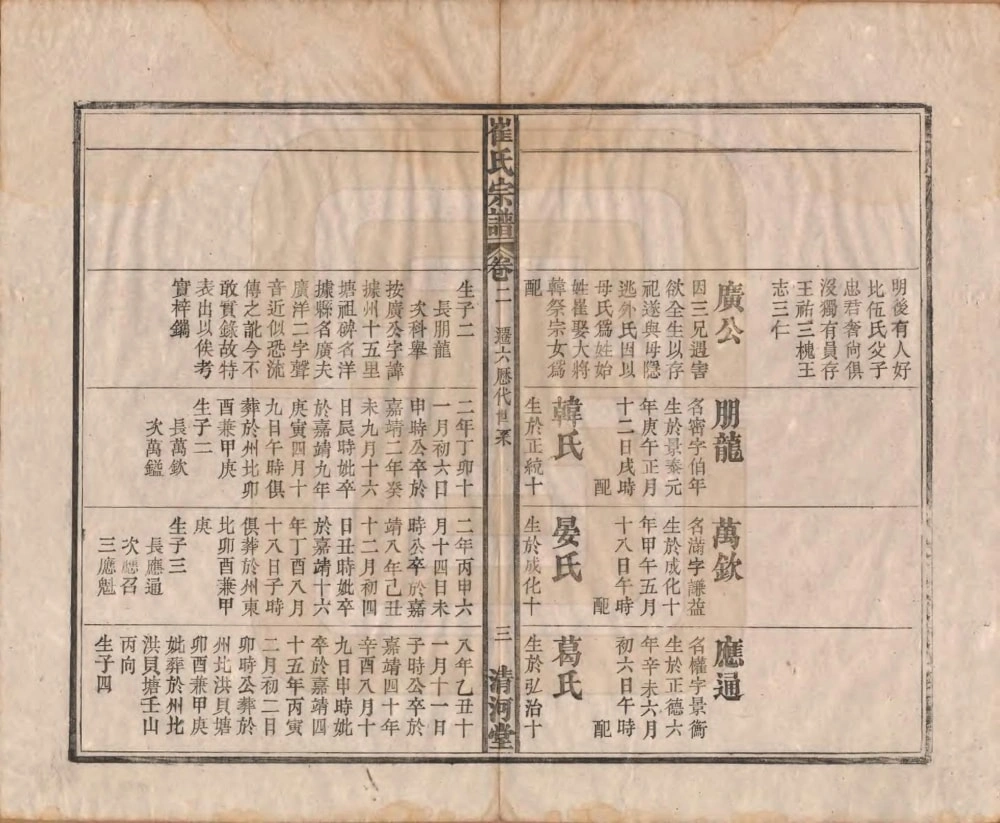 明後有人好
比伍氏父子
忠君奢尚俱
沒獨有員存
王祐三槐王
志三仁
廣公
因三兄遇害
欲全生以存
祀遂與母隱
逃外氏因以
母氏爲姓始
姓崔娶大將
韓祭宗女爲
配
朋龍
名密字伯年
生於景泰元
年庚午正月
十二日戌時
配
韓氏
生於正統十
萬欽
名滿字謙益
生於成化十
年甲午五月
十八日午時
配
晏氏
生於成化十
應通
名權字景衡
生於正德六
年辛未六月
初六日午時
配
葛氏
生於弘治十
崔氏宗譜
卷二
遷六歷代世系
三
清河堂
生子二
長朋龍
次科舉
按廣公字諱
據州十五里
塘祖碑名洋
據縣名廣夫
廣洋二字聲
音近似恐流
傳之訛今不
敢實錄故特
表出以俟考
實梓鐫
二年丁卯十
一月初六日
申時公卒於
嘉靖二年癸
未九月十六
日辰時妣卒
於嘉靖九年
庚寅四月十
九日午時俱
葬於州比卯
酉兼甲庚
生子二
長萬欽
次萬鎰
二年丙申六
月十四日未
時公卒於嘉
靖八年己丑
十二月初四
日丑時妣卒
於嘉靖十六
年丁酉八月
十八日子時
俱葬於州東
比卯酉兼甲
庚
生子三
長應通
次應召
三應魁
八年乙丑十
一月十一日
子時公卒於
嘉靖四十年
辛酉八月十
九日申時妣
卒於嘉靖四
十五年丙寅
二月初二日
卯時公葬於
州比洪貝塘
卯酉兼甲庚
妣葬於州比
洪貝塘壬山
丙向
生子四